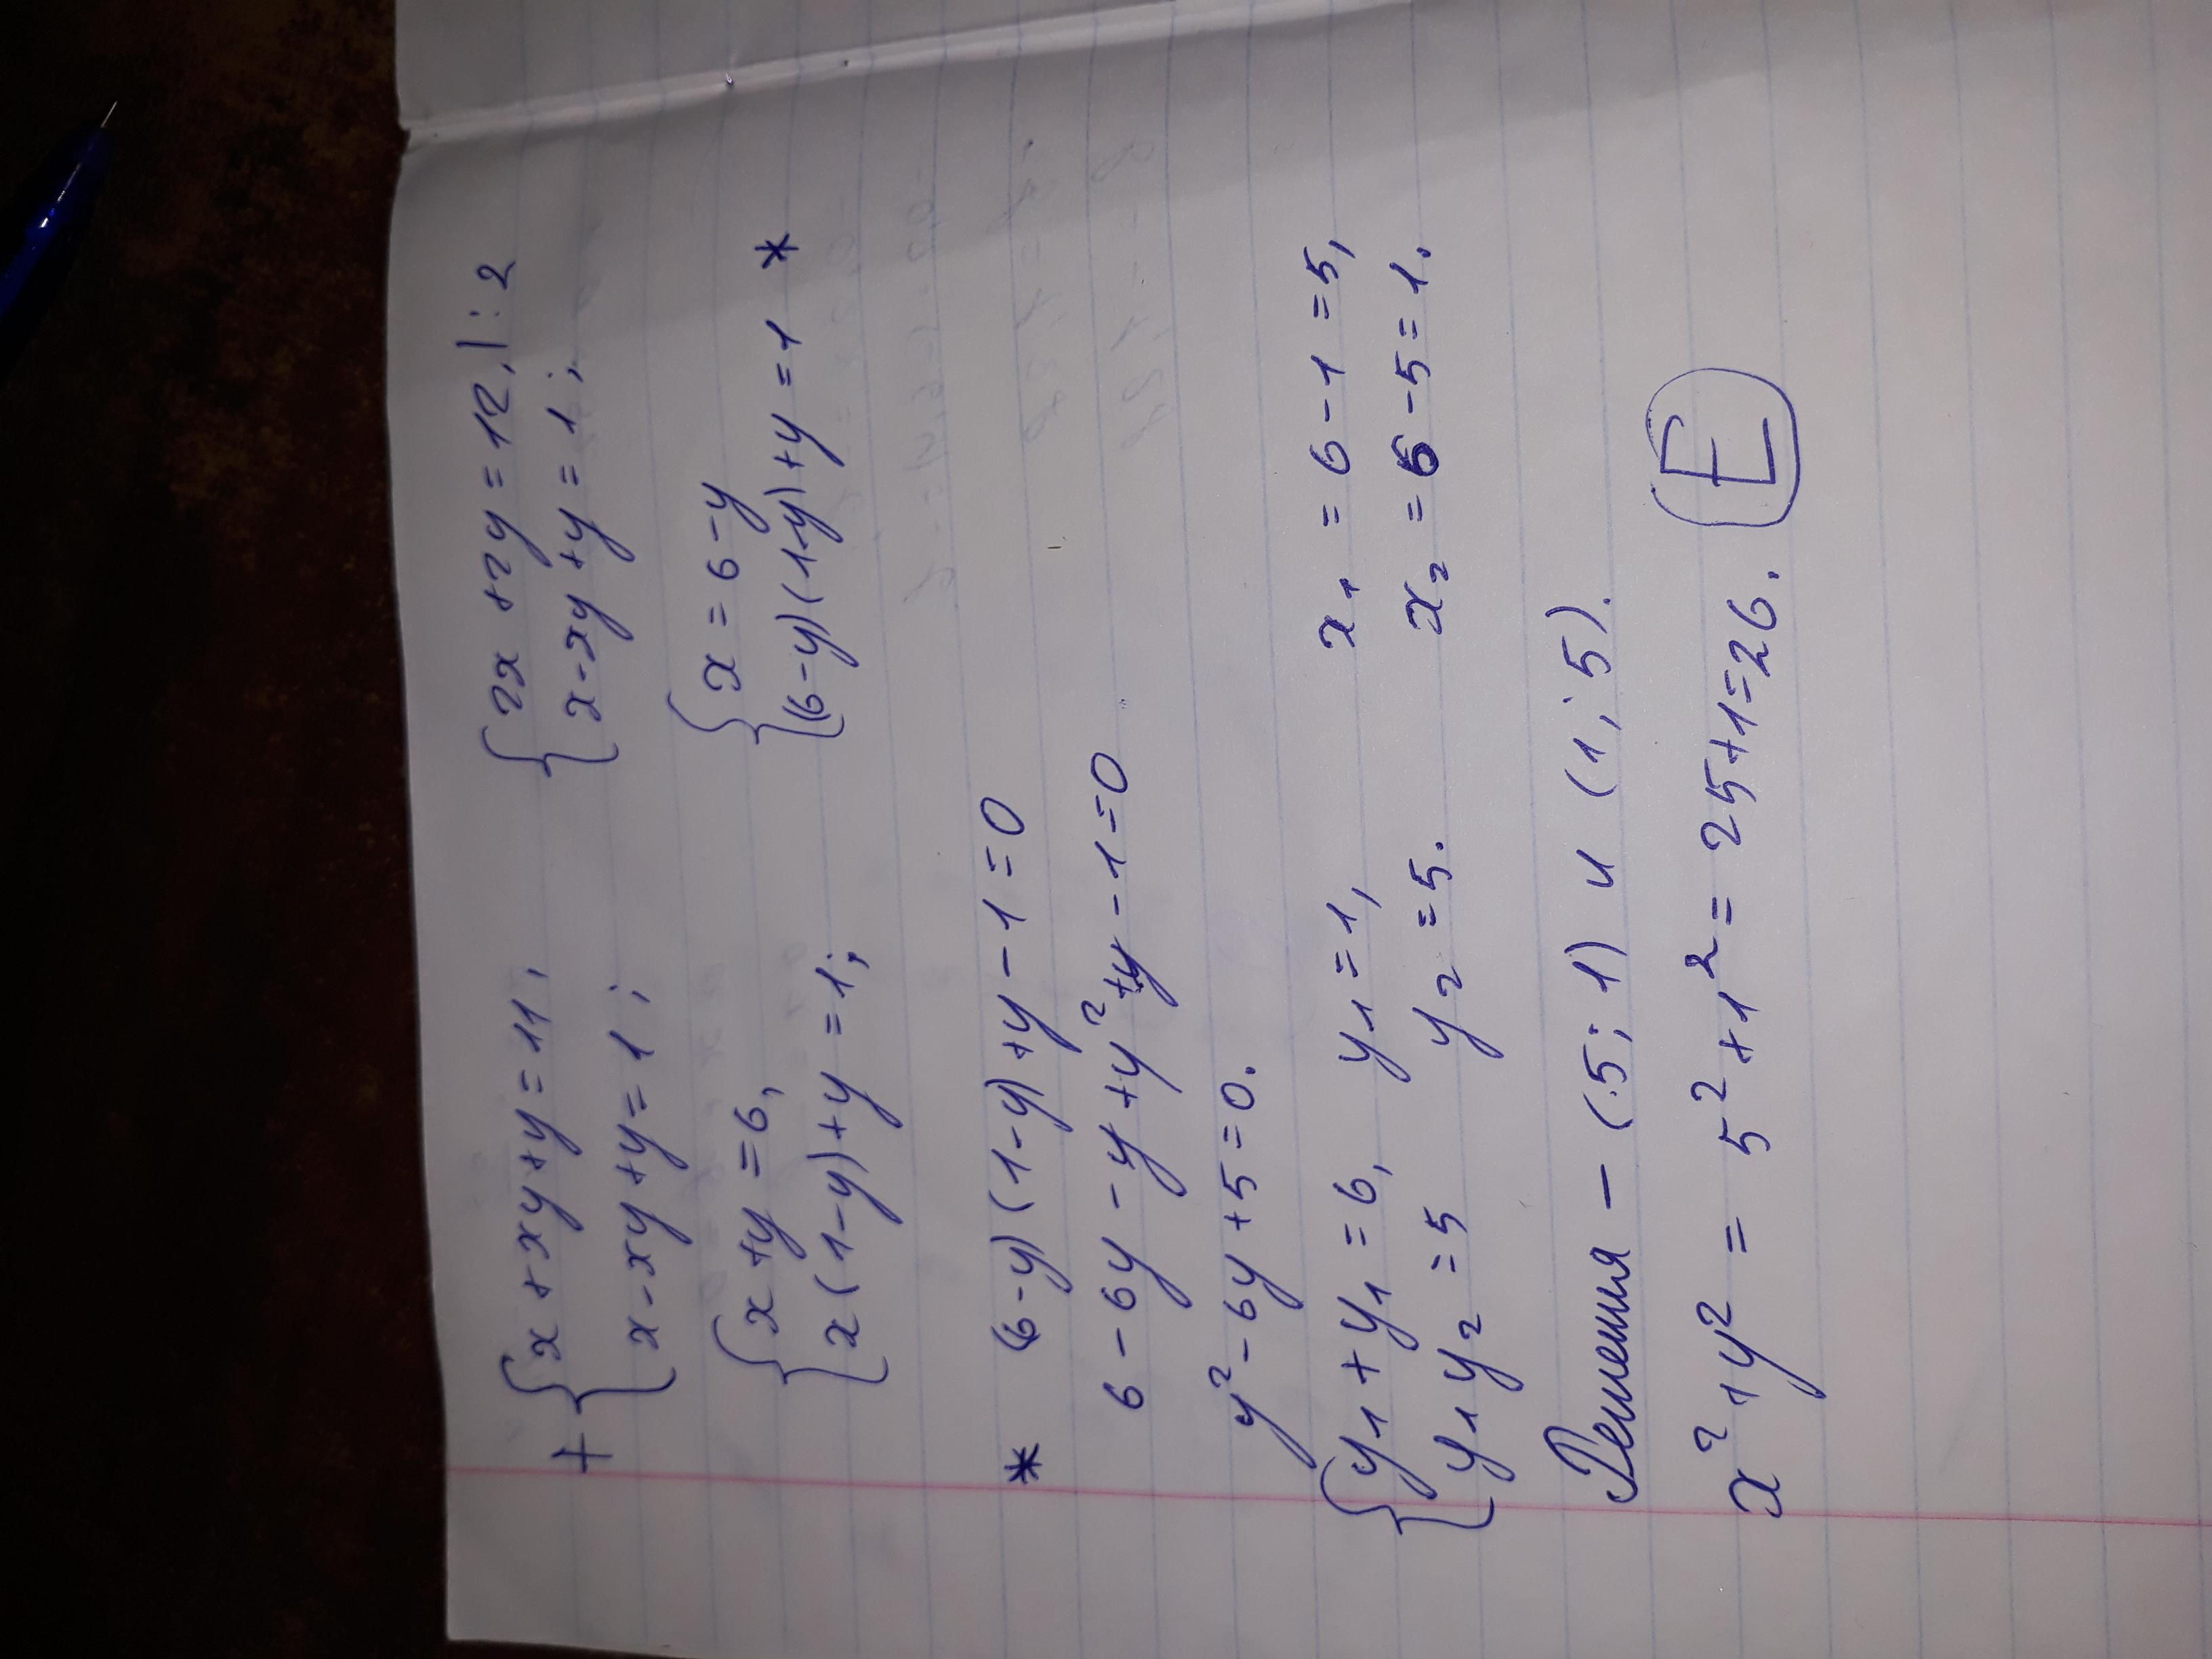 + { x + xy + y = 11, { 2x + 2y = 12, | : 2
x - xy + y = 1; x - xy + y = 1;
{ x + y = 6, { x = 6 - y
x (1 - y) + y = 1; (6 - y) (1 - y) + y = 1 *
* (6 - y) (1 - y) + y - 1 = 0
6 - 6y - y + y² + y - 1 = 0
y² - 6y + 5 = 0.
{ y₁ + y₁ = 6, y₁ = 1, x₁ = 6 - 1 = 5,
y₁ y₂ = 5 y₂ = 5. x₂ = 6 - 5 = 1.
Решения - (5; 1) и (1; 5).
x² + y² = 5² + 1² = 25 + 1 = 26. E